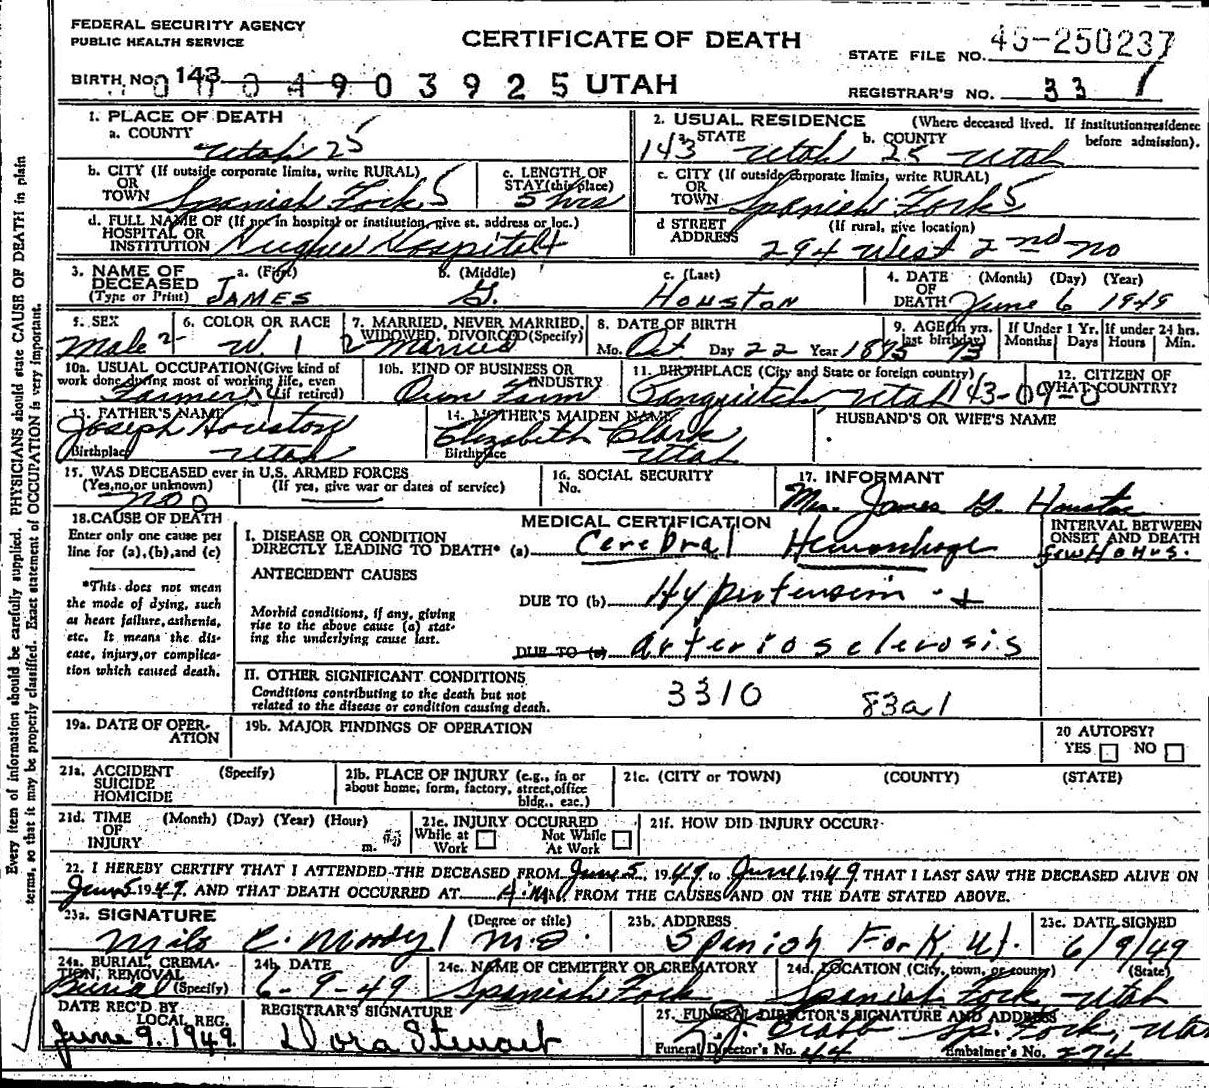 FEDERAL SECURITY AGENCY
PUBLIC HEALTH SERVICE
CERTIFICATE OF DEATH
STATE FILE NO. 49-250237
BIRTH NO. 143
0104903925 UTAH
REGISTRAR'S NO. 33
1. PLACE OF DEATH
a. COUNTY
Utah 25
2. USUAL RESIDENCE (Where deceased lived. If institution: residence before admission).
a. STATE b. COUNTY
143 Utah 25 Utah
b. CITY (If outside corporate limits, write RURAL)
OR
TOWN Spanish Fork 5
c. LENGTH OF
STAY (this place)
5 hrs
c. CITY (If outside corporate limits, write RURAL)
OR
TOWN Spanish Fork 5
d. FULL NAME OF (If not in hospital or institution, give st. address or loc.)
HOSPITAL OR
INSTITUTION Hughes Hospital
d STREET (If rural, give location)
ADDRESS 294 West 2nd No
3. NAME OF DECEASED (Type or Print)
a. (First) b. (Middle) c. (Last)
JAMES G. HOUSTON
4. DATE OF DEATH (Month) (Day) (Year)
June 6 1949
5. SEX
Male 2
6. COLOR OR RACE
W. 1
7. MARRIED, NEVER MARRIED, WIDOWED, DIVORCED (Specify)
2 Married
8. DATE OF BIRTH
Mo. Oct Day 22 Year 1875
9. AGE (In yrs. last birthday)
73
If Under 1 Yr. Months Days
If under 24 hrs. Hours Min.
10a. USUAL OCCUPATION (Give kind of work done during most of working life, even if retired)
Farmer
10b. KIND OF BUSINESS OR INDUSTRY
Own Farm
11. BIRTHPLACE (City and State or foreign country)
Panguitch Utah 143-09-0
12. CITIZEN OF WHAT COUNTRY?
13. FATHER'S NAME
Joseph Houston
Birthplace Utah
14. MOTHER'S MAIDEN NAME
Elizabeth Clark
Birthplace Utah
HUSBAND'S OR WIFE'S NAME
15. WAS DECEASED ever in U.S. ARMED FORCES
(Yes, no, or unknown) (If yes, give war or dates of service)
no 0
16. SOCIAL SECURITY
No.
17. INFORMANT
Mrs. James G. Houston
18. CAUSE OF DEATH
Enter only one cause per
line for (a), (b), and (c)
*This does not mean
the mode of dying, such
as heart failure, asthenia,
etc. It means the dis-
ease, injury, or complica-
tion which caused death.
MEDICAL CERTIFICATION
I. DISEASE OR CONDITION
DIRECTLY LEADING TO DEATH* (a) Cerebral Hemorrhage
INTERVAL BETWEEN
ONSET AND DEATH
few Hours.
ANTECEDENT CAUSES
DUE TO (b) Hypertension - +
Morbid conditions, if any, giving
rise to the above cause (a) stat-
ing the underlying cause last.
DUE TO (c) arteriosclerosis
II. OTHER SIGNIFICANT CONDITIONS
Conditions contributing to the death but not
related to the disease or condition causing death.
3310 83a1
19a. DATE OF OPER-
ATION
19b. MAJOR FINDINGS OF OPERATION
20 AUTOPSY?
YES NO
21a. ACCIDENT (Specify)
SUICIDE
HOMICIDE
21b. PLACE OF INJURY (e.g., in or
about home, form, factory, street, office
bldg., eac.)
21c. (CITY or TOWN) (COUNTY) (STATE)
21d. TIME (Month) (Day) (Year) (Hour)
OF
INJURY m.
21e. INJURY OCCURRED
While at Work Not While At Work
21f. HOW DID INJURY OCCUR?
22. I HEREBY CERTIFY THAT I ATTENDED THE DECEASED FROM June 5, 1949 to June 6 1949 THAT I LAST SAW THE DECEASED ALIVE ON
June 5 1949. AND THAT DEATH OCCURRED AT M. FROM THE CAUSES AND ON THE DATE STATED ABOVE.
23a. SIGNATURE (Degree or title)
Milo C. Moody 1 M.D.
23b. ADDRESS
Spanish Fork, Ut.
23c. DATE SIGNED
6/9/49
24a. BURIAL, CREMA-
TION, REMOVAL
Burial (Specify)
24b. DATE
6-9-49
24c. NAME OF CEMETERY OR CREMATORY
Spanish Fork
24d. LOCATION (City, town, or county) (State)
Spanish Fork Utah
DATE REC'D BY
LOCAL REG.
June 9. 1949
REGISTRAR'S SIGNATURE
Dora Stewart
25. FUNERAL DIRECTOR'S SIGNATURE AND ADDRESS
Sp. Fork, Utah
Funeral Director's No. 44 Embalmer's No. 274
Every item of information should be carefully supplied. PHYSICIANS should state CAUSE OF DEATH in plain
terms, so that it may be properly classified. Exact statement of OCCUPATION is very important.